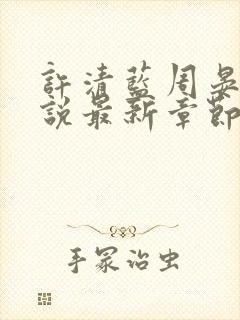 許清藍周晏
說最新章節
手冢治虫